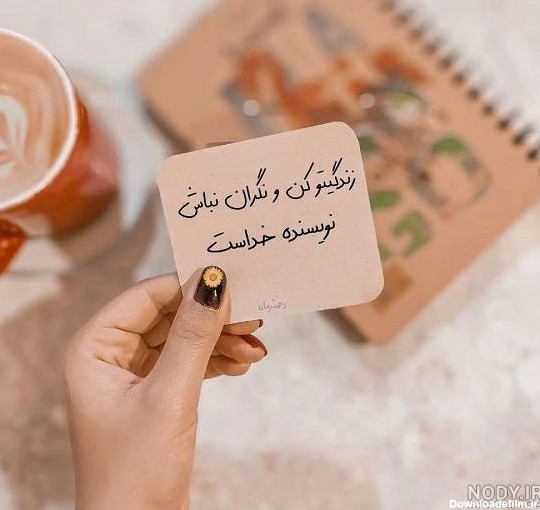 زندگیتو کن و نگران نباش
نویسنده خداست
NODY.IR
Downloadefilm.ir